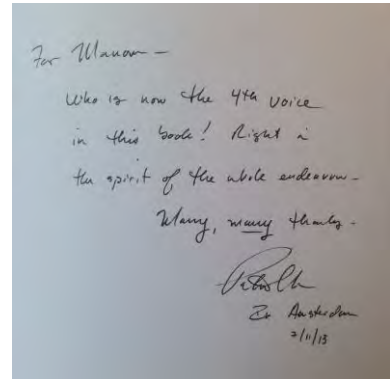 For Manon —
Who is now the 4th voice
in this book! Right in
the spirit of the whole endeavour —
Many, many thanks —
In Amsterdam
2/11/13